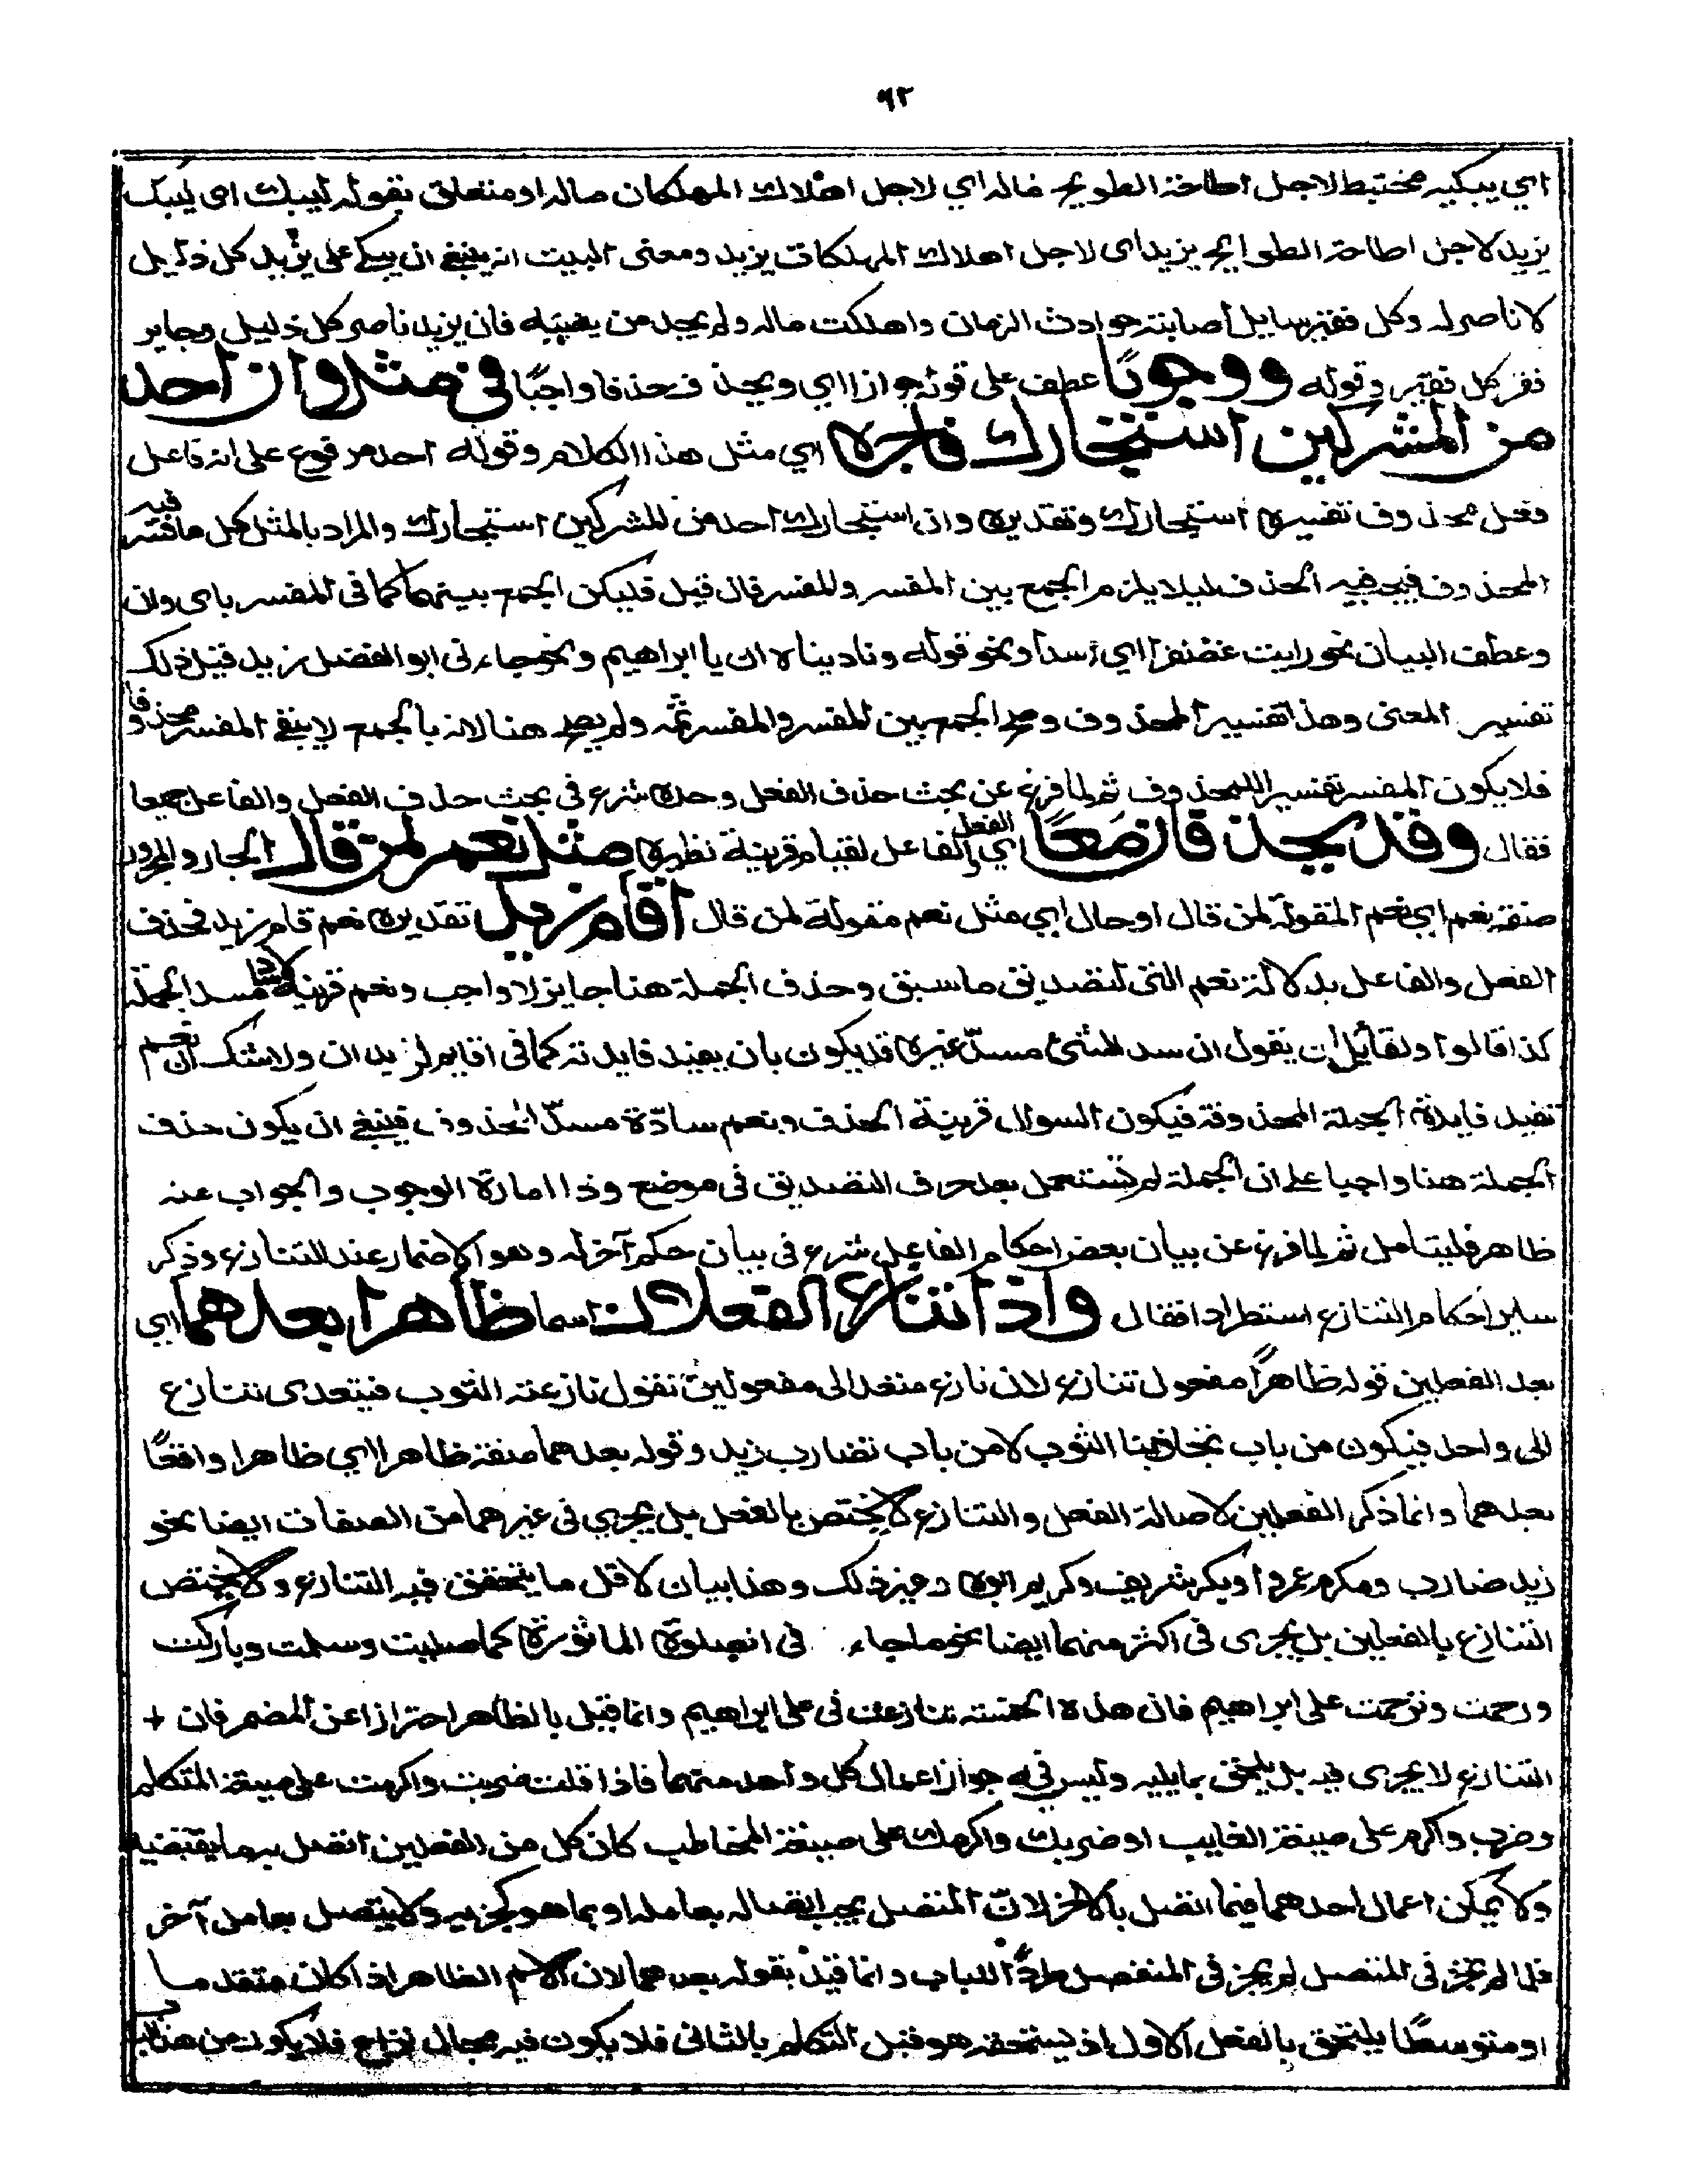 ٩٢
اي يبكيه مختبط لاجل اطاحة الطويح ماله اي لاجل اهلاك المهلكات ماله او متعلق بقوله ليبك اى ليبك
يزيد لاجل اطاحة الطوايح يزيد اى لاجل اهلاك المهلكات يزيد ومعنى البيت انه ينبغي ان يبكي على يزيد كل ذليل
لا ناصر له وكل فقير سايل أصابته حوادث الزمان واهلكت ماله ولم يجد من يغنيه فان يزيد ناصر كل ذليل وجابر
فقر كل فقير وقوله ووجوبًا عطف على قوله جوازا اي ويحذف حذفا واجبًا في مثل وان احد
من المشركين استجارك فاجره اي مثل هذا الكلام وقوله احد مرفوع على انه فاعل
فعل محذوف تفسيره استجارك وتقديره وان استجارك احد من المشركين استجارك والمراد بالمثل كل ما فسر فيه
المحذوف فيجب فيه الحذف ليلا يلزم الجمع بين المفسر والمفسر فان قيل فليكن الجمع بينهما كما في المفسر باى وان
وعطف البيان نحو رايت غضنفرا اي أسدا ونحو قوله وناديناه ان يا ابراهيم ونحو جاءنى ابو الفضل زيد قيل ذلك
تفسير المعنى وهذا تفسير المحذوف وصح الجمع بين المفسر والمفسر ثمه ولم يصح هنا لانه بالجمع لا يبقى المفسر محذوفا
فلا يكون المفسر تفسير المحذوف ثم لما فرغ عن بحث حذف الفعل وحده شرع في بحث حذف الفعل والفاعل جميعا
فقال وقد يحذفان معًا اي الفعل والفاعل لقيام قرينة نظيره مثل نعم لمن قال الجار والمجرور
صفة نعم اي نعم المقولة لمن قال او حال اي مثل نعم مقولة لمن قال أقام زيد تقديره نعم قام زيد فحذف
الفعل والفاعل بدلالة نعم التى لتصديق ما سبق وحذف الجملة هنا جايز لا واجب ونعم قرينة لا ساد مسد الجملة
كذا قالوا ولقائل ان يقول ان سد الشئ مسدّ غيره قد يكون بان يفيد فايدته كما في اقايم الزيدان ولا شك أن نعم
تفيد فايدة الجملة المحذوفة فيكون السوال قرينة الحذف ونعم سادّة مسدّ المحذوف فينبغي ان يكون حذف
الجملة هنا واجبا على ان الجملة لم تستعمل بعد حرف التصديق في موضع وذا امارة الوجوب والجواب عنه
ظاهر فليتامل ثم لما فرغ عن بيان بعض احكام الفاعل شرع في بيان حكم آخر له وهو الاضمار عند التنازع وذكر
ساير احكام التنازع استطرادا فقال واذا تنازع الفعلان اسما ظاهرا بعدهما اي
بعد الفعلين قوله ظاهرًا مفعول تنازع لان نازع متعد الى مفعولين تقول نازعته الثوب فيتعدى تنازع
الى واحد فيكون من باب تجاذبنا الثوب لا من باب تضارب زيد وقوله بعدهما صفة ظاهرا اي ظاهرا واقعًا
بعدهما وانما ذكر الفعلين لاصالة الفعل والتنازع لا يختص بالفعل بل يجري في غيرهما من الصفات ايضا نحو
زيد ضارب ومكرم عمروا وبكر شريف وكريم ابوه وغير ذلك وهذا بيان لاقل ما يتحقق فيه التنازع ولا يختص
التنازع بالفعلين بل يجرى في اكثر منهما ايضا نحو ما جاء في الصلوة الماثورة كما صليت وسلمت وباركت
ورحمت وترحمت على ابراهيم فان هذه الخمسة تنازعت في على ابراهيم وانما قيل بالظاهر احترازا عن المضمر فان +
التنازع لا يجرى فيه بل يلحق بما يليه وليس فيه جواز اعمال كل واحد منهما فاذا قلت ضربت واكرمت على صيغة المتكلم
وضرب واكرم على صيغة الغايب او ضربك واكرمك على صيغة المخاطب كان كل من الفعلين اتصل به ما يقتضيه
ولا يمكن اعمال احدهما فيما اتصل بالاخر لانّ المتصل يجب اتصاله بعامله او بما هو كجزءيه ولا يتصل بعامل آخر
فلما لم يجز في المتصل لم يجز في المنفصل طردًا للباب وانما قيد بقوله بعدهما لان الاسم الظاهر اذا كان متقدما
او متوسطًا يلتحق بالفعل الاول اذ يستحقه هو قبل التكلم بالثانى فلا يكون فيه مجال نزاع فلا يكون من هذا الباب